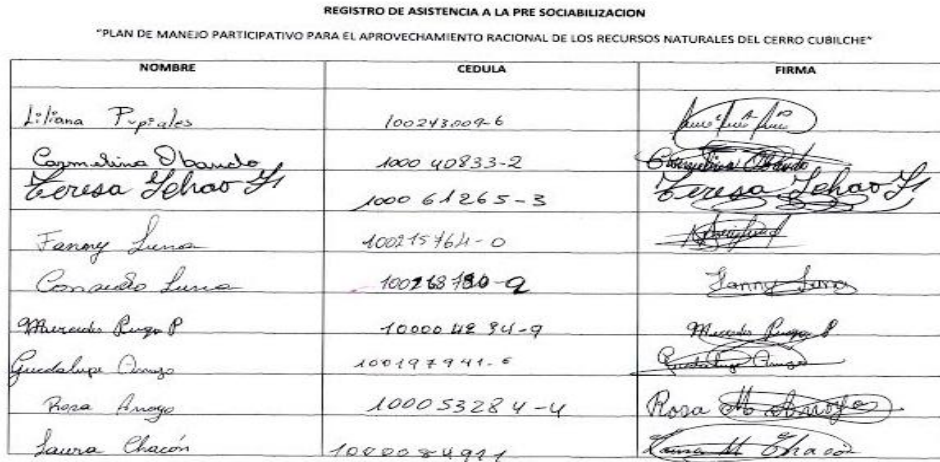 REGISTRO DE ASISTENCIA A LA PRE SOCIABILIZACION
"PLAN DE MANEJO PARTICIPATIVO PARA EL APROVECHAMIENTO RACIONAL DE LOS RECURSOS NATURALES DEL CERRO CUBILCHE"
NOMBRE CEDULA FIRMA
Liliana Pupiales 100243009-6
Carmelina Obando 1000 40833-2 Carmelina Obando
Teresa 1000 61265-3 Teresa
Fanny Luna
Consuelo Luna Fanny Luna
Mercedes P Mercedes P
Guadalupe 100197941-6 Guadalupe
Rosa Arroyo 100053284-4 Rosa M Arroyo
Laura Chacón Laura M Chacón